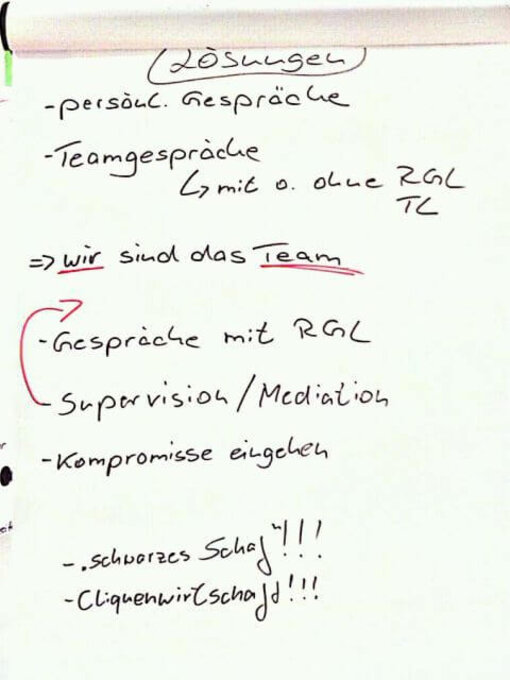 Lösungen
-persönl. Gespräche
-Teamgespräche
↳ mit o. ohne RGL
TL
=> wir sind das Team
-Gespräche mit RGL
-Supervision/Mediation
-Kompromisse eingehen
-„schwarzes Schaf"!!!
-Cliquenwirtschaft!!!